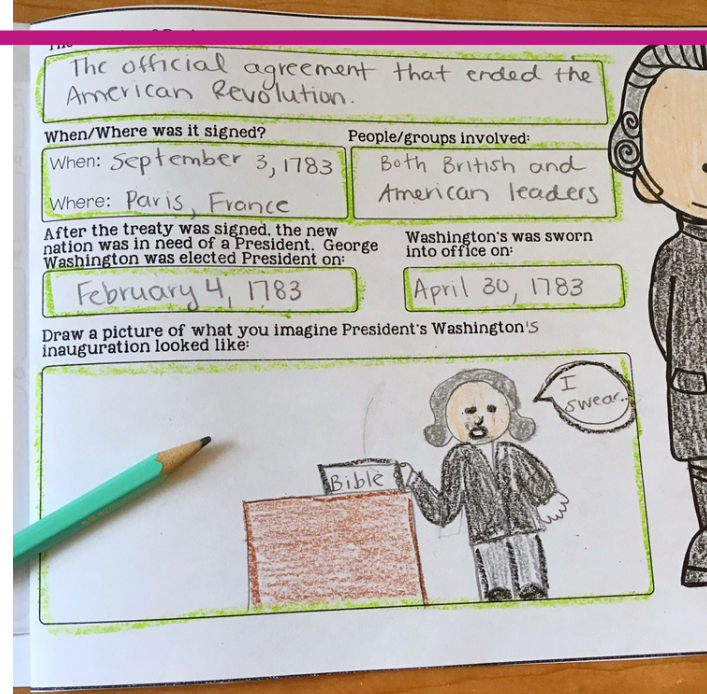 The official agreement that ended the
American Revolution.
When/Where was it signed?
People/groups involved:
When: September 3, 1783
Where: Paris, France
Both British and
American leaders
After the treaty was signed, the new
nation was in need of a President. George
Washington was elected President on:
Washington's was sworn
into office on:
February 4, 1783
April 30, 1783
Draw a picture of what you imagine President's Washington's
inauguration looked like:
I
swear..
Bible